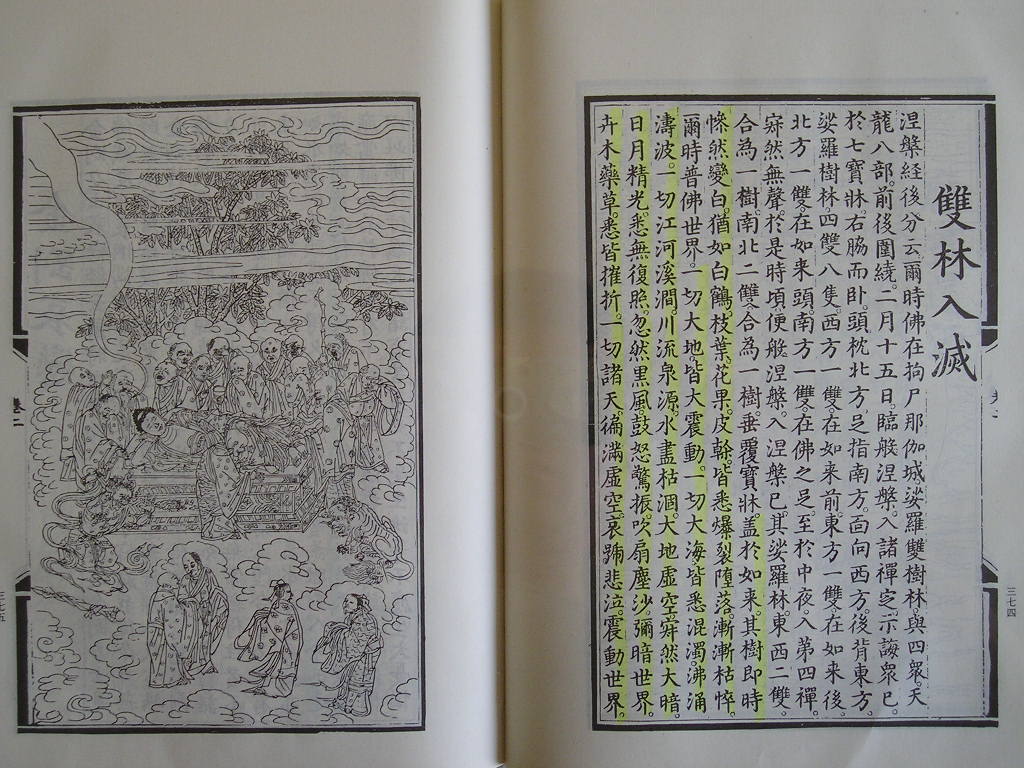 雙林入滅
涅槃經後分云爾時佛在拘尸那伽城娑羅雙樹林與四眾天
龍八部前後圍繞二月十五日臨般涅槃入諸禪定示誨眾已
於七寶牀右脇而卧頭枕北方足指南方面向西方後背東方
娑羅樹林四雙八隻西方一雙在如來前東方一雙在如來後
北方一雙在如來頭南方一雙在佛之足至於中夜入第四禪
寂然無聲於是時頃便般涅槃入涅槃已其娑羅林東西二雙
合為一樹南北二雙合為一樹垂覆寶牀蓋於如來其樹即時
慘然變白猶如白鶴枝葉花果皮幹皆悉爆裂墮落漸漸枯悴
爾時普佛世界一切大地皆大震動一切大海皆悉混濁沸涌
濤波一切江河溪澗川流泉源水盡枯涸大地虛空寂然大暗
日月精光悉無復照忽然黑風鼓怒驚振吹扇塵沙彌暗世界
卉木藥草悉皆摧折一切諸天徧滿虛空哀號悲泣震動世界
三七四
三七五